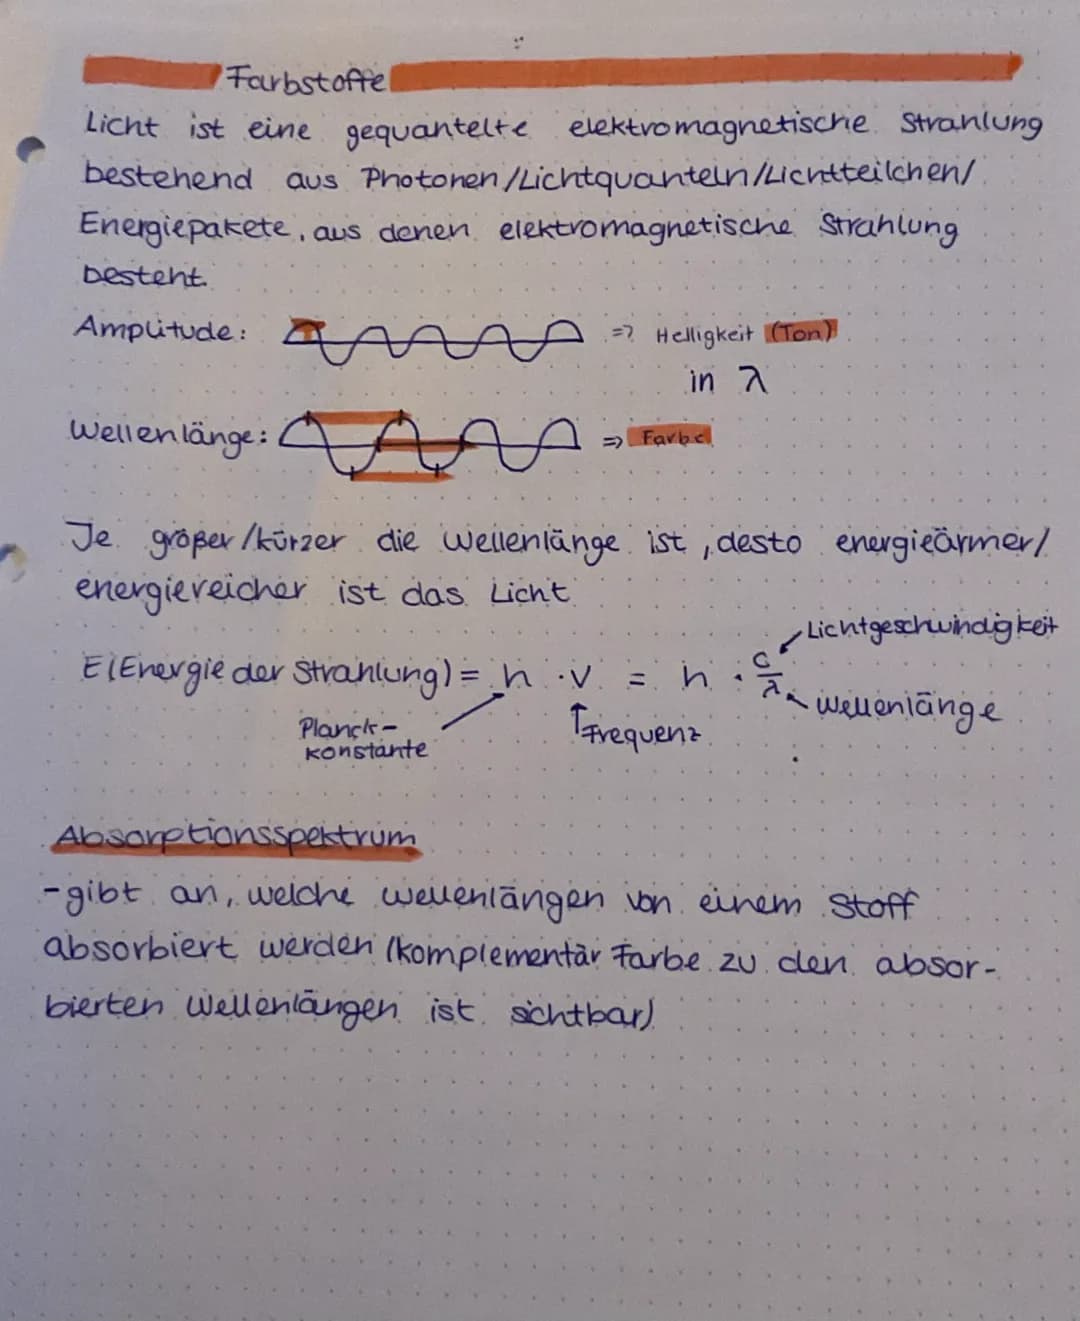 Farbstoffe
Licht ist eine gequantelte elektromagnetische Strahlung
bestehend aus Photonen/Lichtquanteln/Lichtteilchen/
Energiepakete, aus denen elektromagnetische Strahlung
besteht.
Amplitude: => Helligkeit (Ton)
in λ
Wellenlänge: => Farbe
Je größer/kürzer die Wellenlänge ist, desto energieärmer/
energiereicher ist das Licht
Lichtgeschwindigkeit
E(Energie der Strahlung) = h · v = h · c/λ
Wellenlänge
Planck-
konstante
Frequenz
Absorptionsspektrum
- gibt an, welche Wellenlängen von einem Stoff
absorbiert werden (komplementär Farbe zu den absor-
bierten Wellenlängen ist sichtbar)